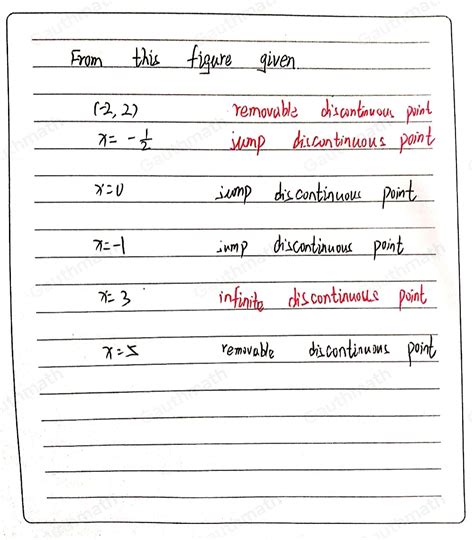 From this figure given.
(-2, 2) removable discontinuous point
x = -1/2 jump discontinuous point
x=0 jump discontinuous point
x=-1 jump discontinuous point
x= 3 infinite discontinuous point
x=5 removable discontinuous point